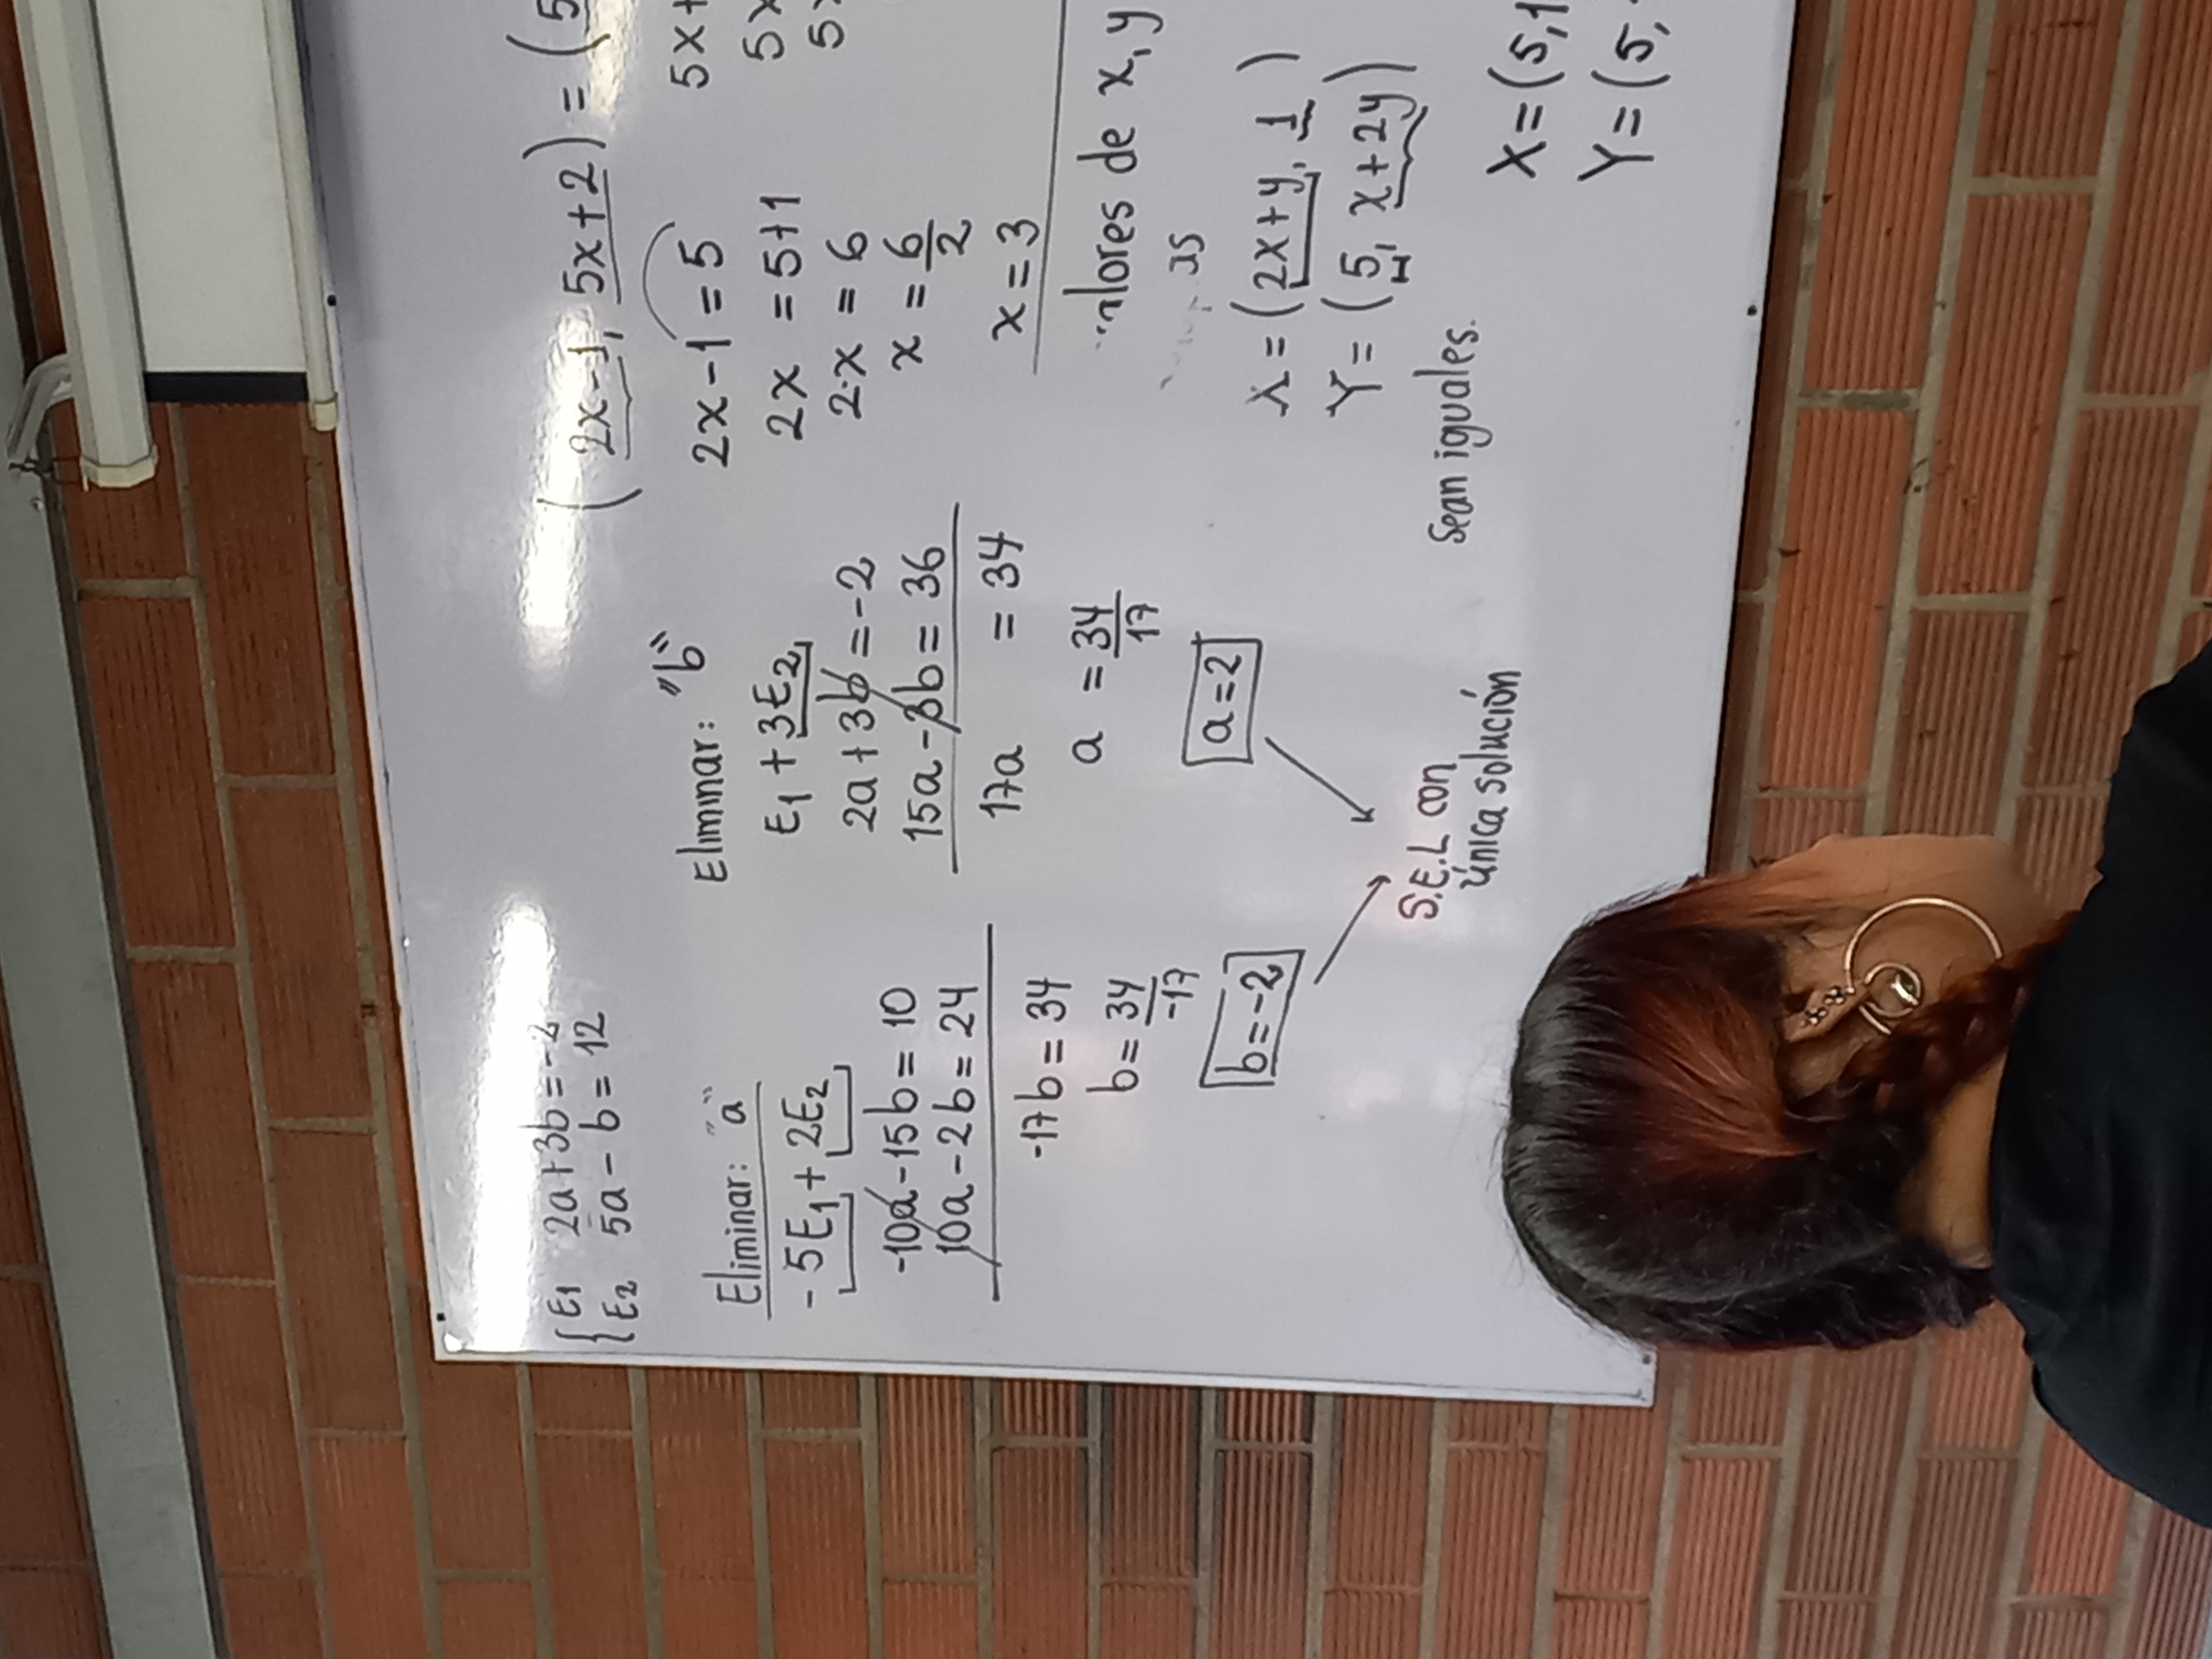 E1 2a+3b=-2
E2 5a-b=12
Eliminar: "a"
-5E1+2E2
-10a-15b=10
10a-2b=24
-17b=34
b=34/-17
b=-2
Eliminar: "b"
E1+3E2
2a+3b=-2
15a-3b=36
17a =34
a =34/17
a=2
S.E.L con
única solución
(2x-1, 5x+2)=(5
2x-1=5
2x =5+1
2·x =6
x =6/2
x=3
5x+
5x
5x
alores de x, y
as
X=(2x+y, 1)
Y=(5, x+2y)
sean iguales.
X=(5,1
Y=(5,